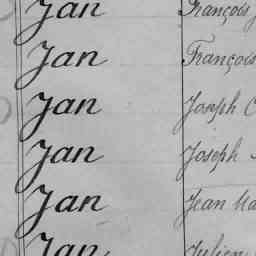 Jan François
Jan François
Jan Joseph
Jan Joseph
Jan Jean
Jan Julien